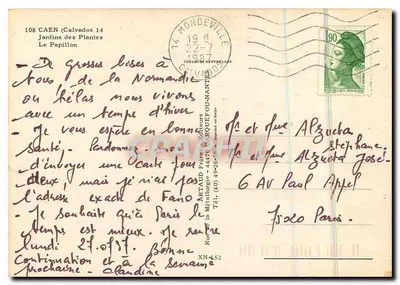 108 CAEN (Calvados 14
Jardins des Plantes
Le Papillon
14 MONDEVILLE
19 H
22-7
1987
CALVADOS
0,90
- De grosses bises à
tous de la Normandie
où hélas nous vivons
avec un temps d'hiver
- Je vous espère en bonne
santé, - Pardonne moi
d'envoyer une carte pour
deux, mais je n'ai pas
l'adresse exacte de Fano.
- Je souhaite qu'à Paris le
temps est mieux. Je rentre
lundi 27.07.87. Bonne
Continuation et à la semaine
prochaine. - Claudine
ARTAUD Frères, Editeurs
Rue de la Métallurgie - 44470 CARQUEFOU-NANTES
XN-152
Mr et Mme Alzueta
Stéphane
Mr et Mme Alzueta José
6 AV Paul Appel
75020 Paris.